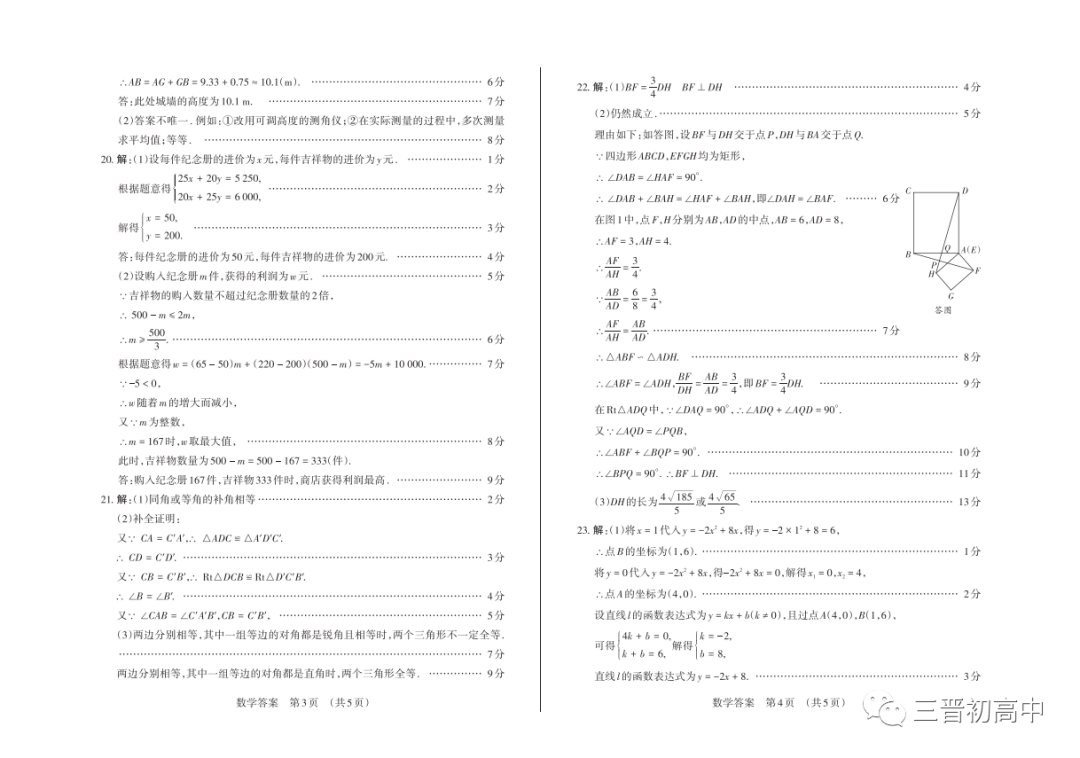 ∴AB = AG + GB = 9.33 + 0.75 ≈ 10.1(m). …… 6分
答:此处城墙的高度为10.1 m. …… 7分
(2)答案不唯一. 例如:①改用可调高度的测角仪;②在实际测量的过程中,多次测量
求平均值;等等. …… 8分
20. 解:(1)设每件纪念册的进价为x元,每件吉祥物的进价为y元. …… 1分
根据题意得{25x + 20y = 5 250,
20x + 25y = 6 000, …… 2分
解得{x = 50,
y = 200. …… 3分
答:每件纪念册的进价为50元,每件吉祥物的进价为200元. …… 4分
(2)设购入纪念册m件,获得的利润为w元. …… 5分
∵吉祥物的购入数量不超过纪念册数量的2倍,
∴ 500 − m ≤ 2m,
∴m ≥ 500/3. …… 6分
根据题意得w = (65 − 50)m + (220 − 200)(500 − m) = −5m + 10 000. …… 7分
∵−5 < 0,
∴w随着m的增大而减小,
又∵m为整数,
∴m = 167时,w取最大值, …… 8分
此时,吉祥物数量为500 − m = 500 − 167 = 333(件).
答:购入纪念册167件,吉祥物333件时,商店获得利润最高. …… 9分
21. 解:(1)同角或等角的补角相等 …… 2分
(2)补全证明:
又∵ CA = C′A′,∴ △ADC ≌ △A′D′C′.
∴ CD = C′D′. …… 3分
又∵ CB = C′B′,∴ Rt△DCB ≌ Rt△D′C′B′.
∴ ∠B = ∠B′. …… 4分
又∵ ∠CAB = ∠C′A′B′,CB = C′B′, …… 5分
(3)两边分别相等,其中一组等边的对角都是锐角且相等时,两个三角形不一定全等.
…… 7分
两边分别相等,其中一组等边的对角都是直角时,两个三角形全等. …… 9分
数学答案 第3页 (共5页)
22. 解:(1)BF = 3/4 DH BF ⊥ DH …… 4分
(2)仍然成立. …… 5分
理由如下:如答图,设BF与DH交于点P,DH与BA交于点Q.
∵四边形ABCD,EFGH均为矩形,
∴ ∠DAB = ∠HAF = 90°.
∴ ∠DAB + ∠BAH = ∠HAF + ∠BAH,即∠DAH = ∠BAF. …… 6分
在图1中,点F,H分别为AB,AD的中点,AB = 6,AD = 8,
∴AF = 3,AH = 4.
∴AF/AH = 3/4.
∵AB/AD = 6/8 = 3/4,
∴AF/AH = AB/AD. …… 7分
C
D
B
Q
A(E)
P
H
F
G
答图
∴△ABF ∽ △ADH. …… 8分
∴∠ABF = ∠ADH,BF/DH = AB/AD = 3/4,即BF = 3/4 DH. …… 9分
在Rt△ADQ中,∵∠DAQ = 90°,∴∠ADQ + ∠AQD = 90°.
又∵∠AQD = ∠PQB,
∴∠ABF + ∠BQP = 90°. …… 10分
∴∠BPQ = 90°.∴BF ⊥ DH. …… 11分
(3)DH的长为4√185/5或4√65/5. …… 13分
23. 解:(1)将x = 1代入y = −2x² + 8x,得y = −2 × 1² + 8 = 6,
∴点B的坐标为(1,6). …… 1分
将y = 0代入y = −2x² + 8x,得−2x² + 8x = 0,解得x₁ = 0,x₂ = 4,
∴点A的坐标为(4,0). …… 2分
设直线l的函数表达式为y = kx + b(k ≠ 0),且过点A(4,0),B(1,6),
可得{4k + b = 0,
k + b = 6, 解得{k = −2,
b = 8,
直线l的函数表达式为y = −2x + 8. …… 3分
数学答案 第4页 (共5页)
三晋初高中